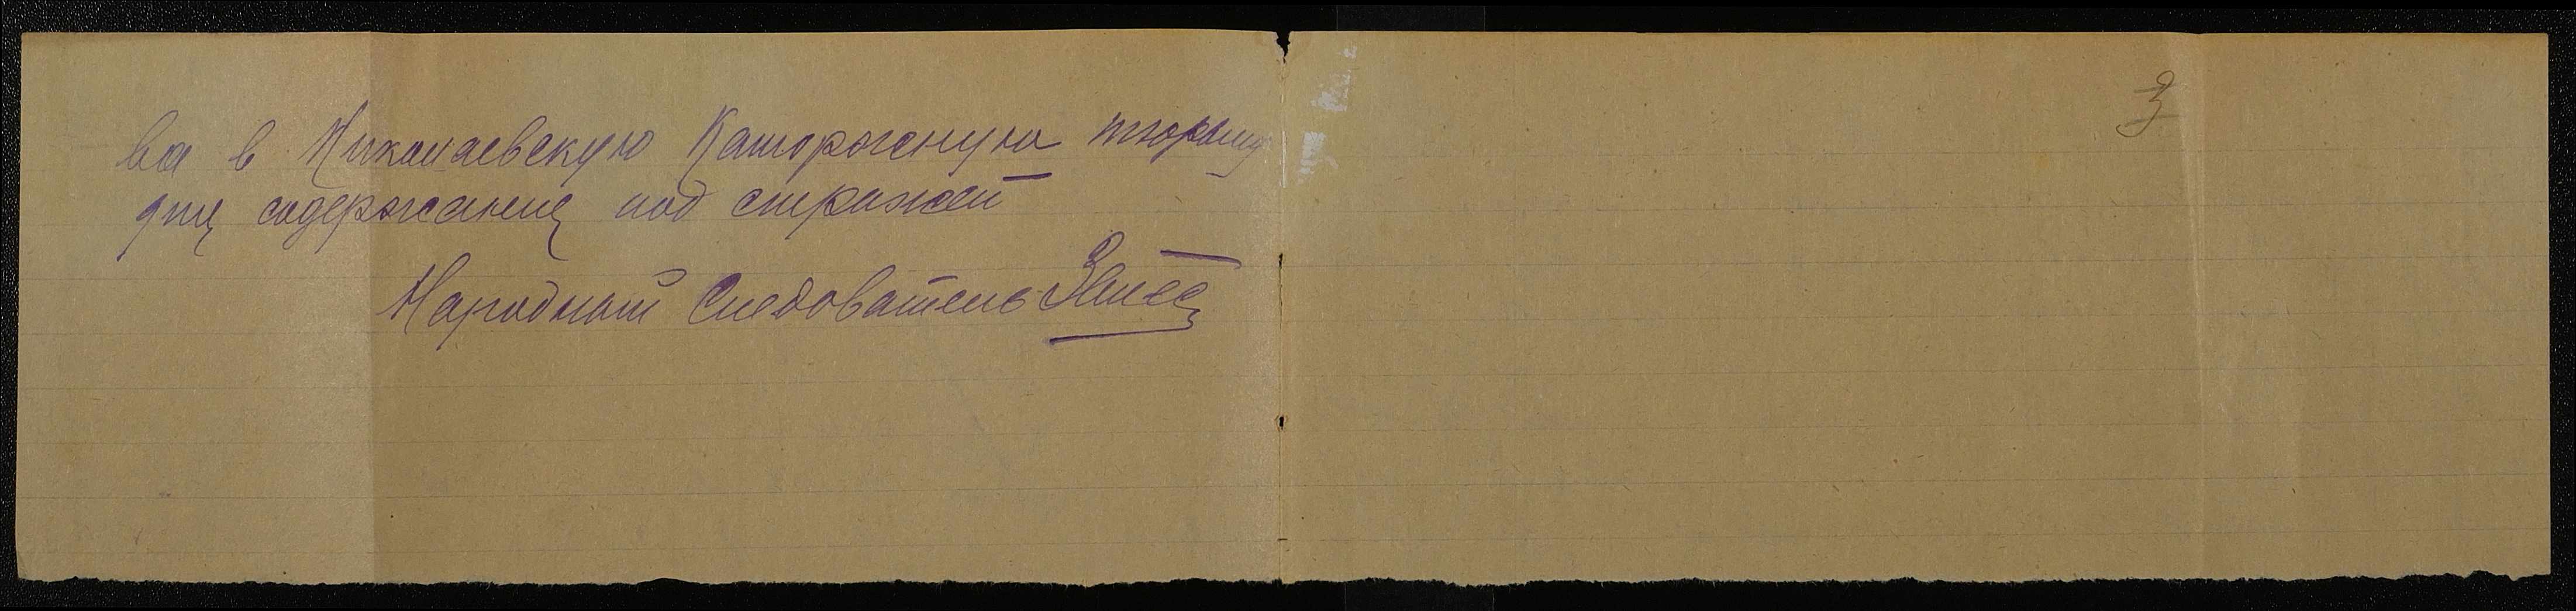 3
ва в Николаевскую Каторжную тюрьму
для содержания под стражей
Народный Следователь